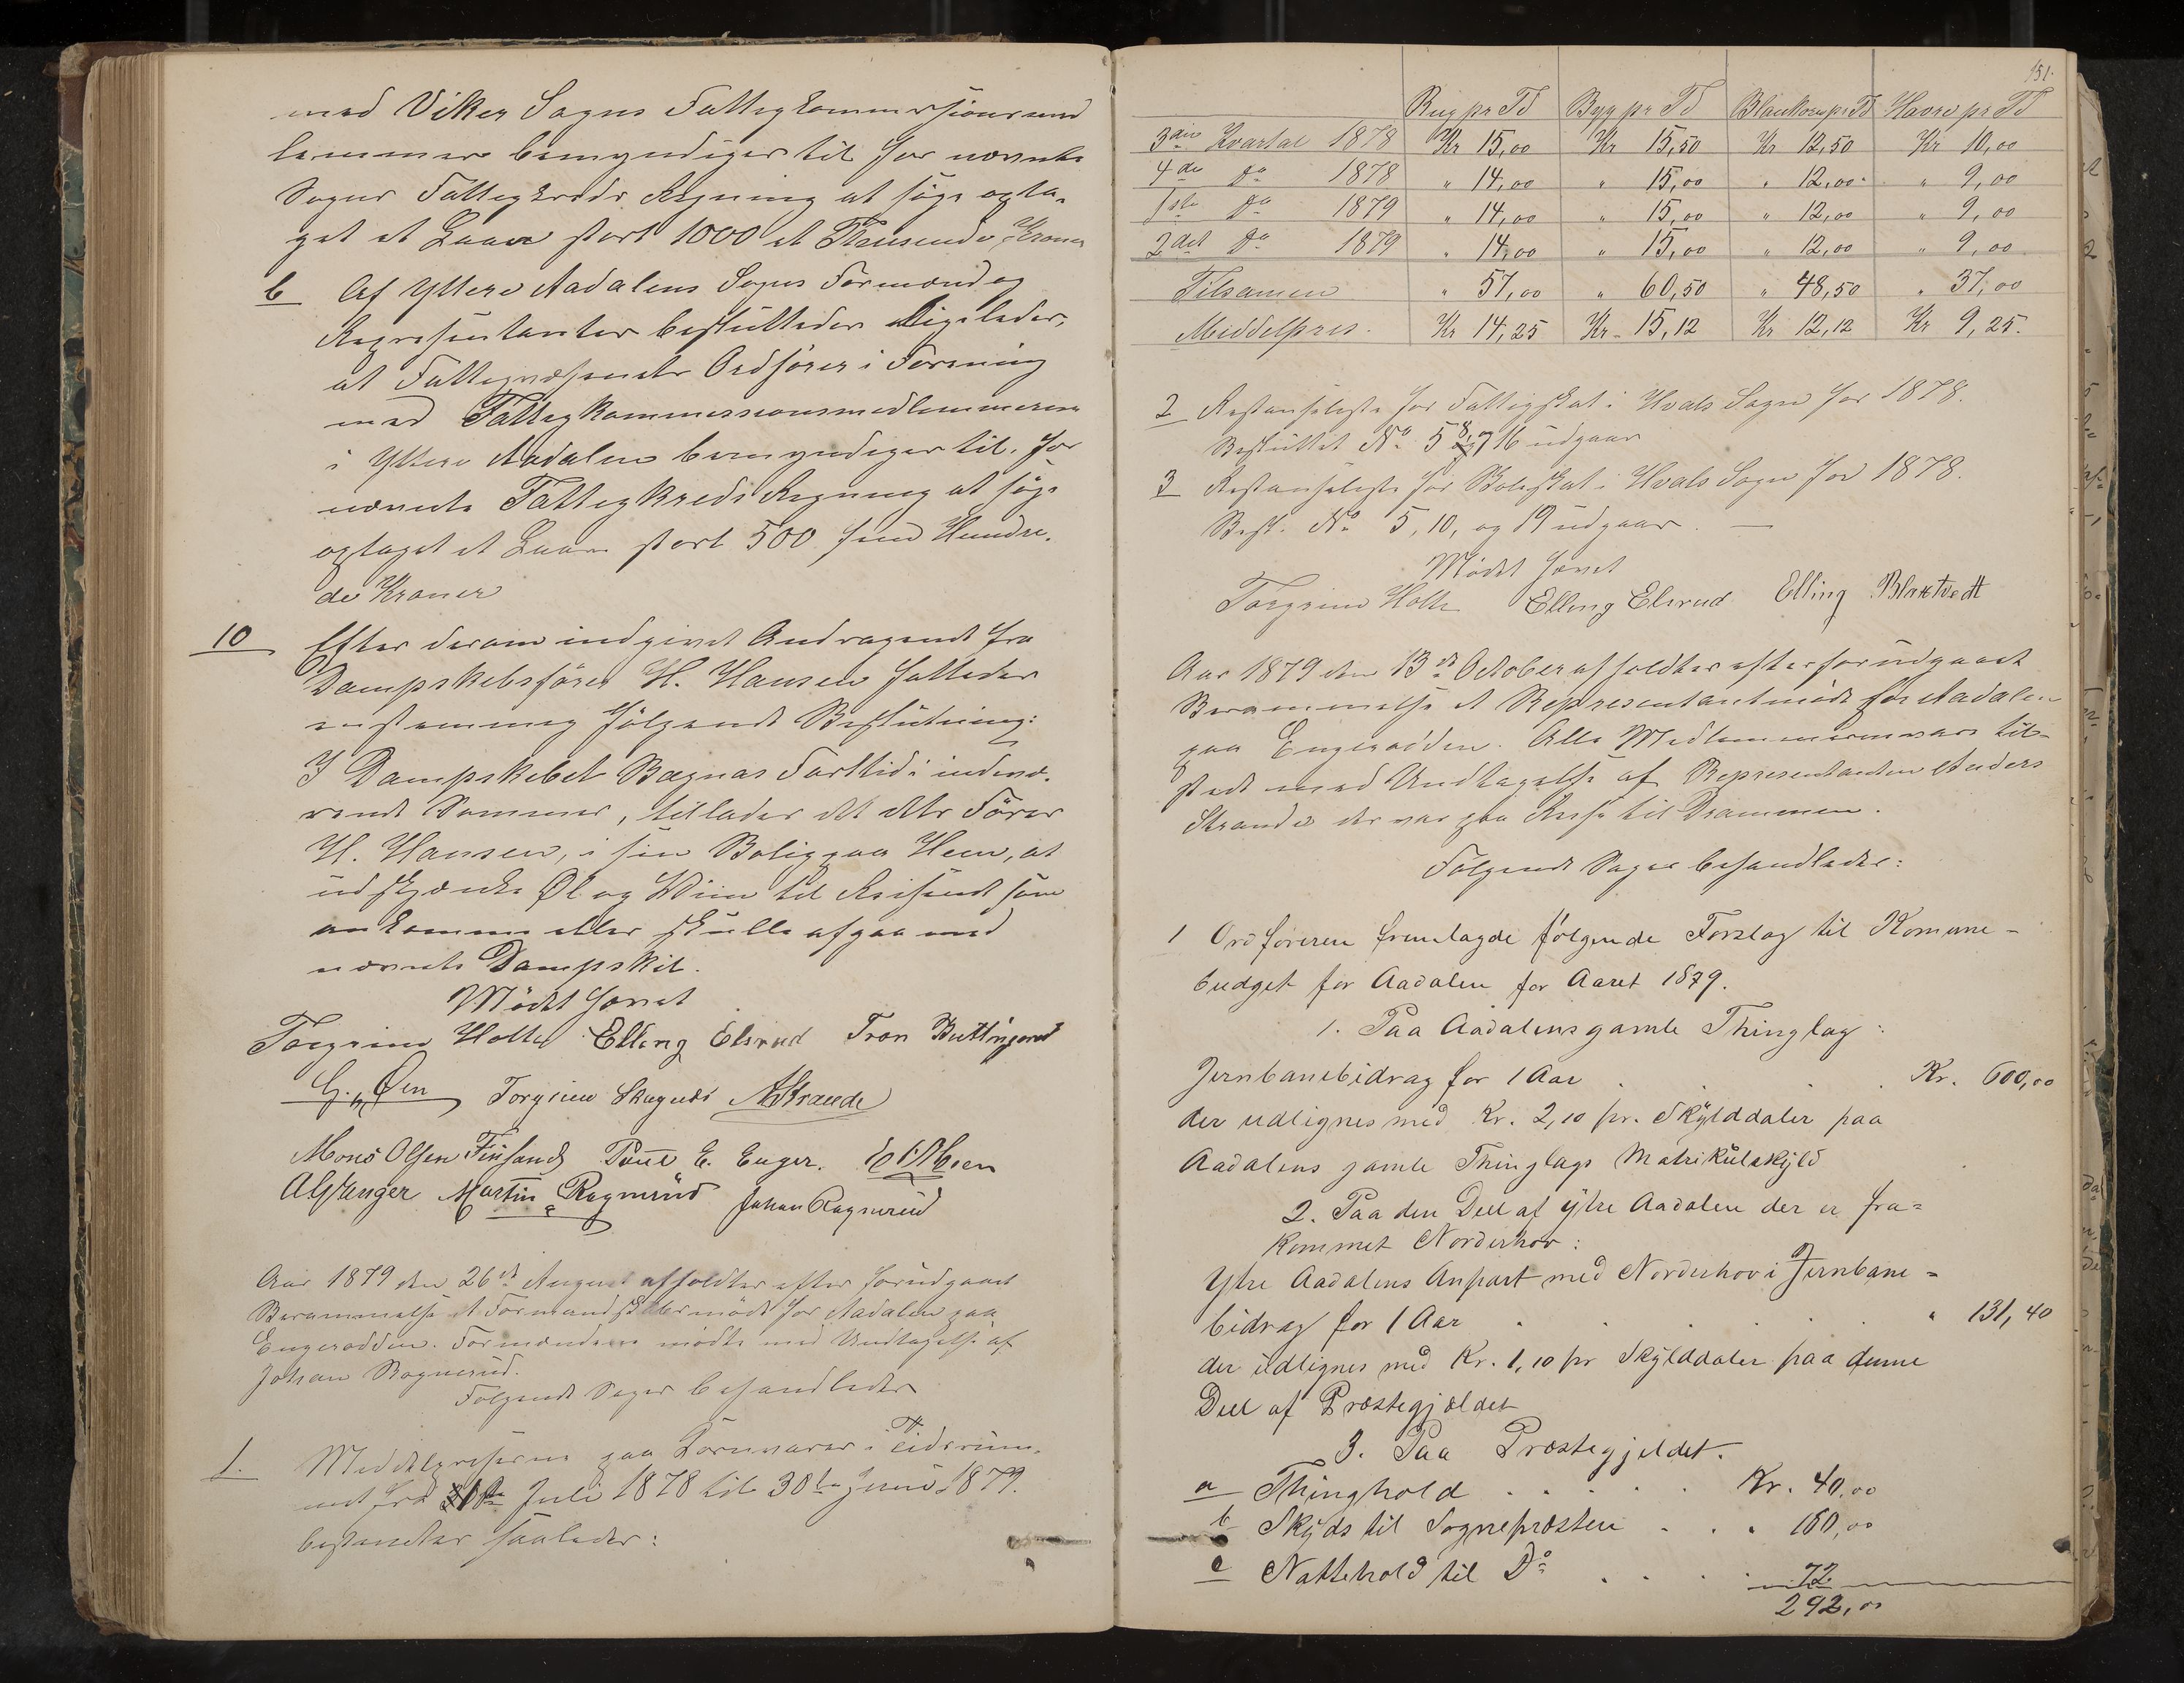 med Viker Sogns Fattigkommissionsmed
lemmer bemyndiges til for nævnte
Sogns Fattigkreds Regning at søge opta-
get et Laan stort 1000 et Thusende Kroner
b Af Ytere Aadalens Sogns Formænd og
Repræsentanter besluttedes ligeledes,
at Fattigvæsenets Ordfører i Forening
med Fattigkommissionsmedlemmerne
i Ytere Aadalen bemyndiges til, for
nævnte Fattigkreds Regning at søge
optaget et Laan stort 500 fem Hundre-
de Kroner
10 Efter derom indgivet Andragende fra
Dampskibsfører H. Hansen fattedes
enstemmig følgende Beslutning:
I Dampskibet Bægnas Farttid i indevæ-
rende Sommer, tillades det dets Fører
H. Hansen, i sin Bolig paa Heen, at
udskjænke Øl og Viin til Reisende som
ankomme eller skulle afgaa med
nævnte Dampskib.
Mødet hævet
Torgrim Holte Elling Elsrud Tron Buttingsrud
G. Øen Torgrim Skagnæs AStrande
Mons Olsen Finsand Poul E. Enger.
Martin Ragnrud Johan Ragnerud
Aar 1879 den 26de August afholdtes efter forudgaaet
Berammelse et Formandskabsmøde for Aadalen paa
Engerodden. Formændene mødte med Undtagelse af
Johan Ragnerud.
Følgende Sager behandledes
1. Middelpriserne paa Kornvarer i Tidsrum-
met fra 1ste Juli 1878 til 30te Juni 1879.
bestemtes saaledes:
151.
Rug pr Td Byg pr Td Blankorn pr Td Havre pr Td
3die Kvartal 1878 Kr 15,00 Kr 15,50 Kr 12,50 Kr 10,00
4de Do 1878 " 14,00 " 15,00 " 12,00 " 9,00
1ste Do 1879 " 14,00 " 15,00 " 12,00 " 9,00
2det Do 1879 " 14,00 " 15,00 " 12,00 " 9,00
Tilsamen " 57,00 " 60,50 " 48,50 " 37,00
Middelpris. Kr 14,25 Kr. 15,12 Kr 12,12 Kr 9,25.
2 Restanseliste for Fattigskat i Hvals Sogn for 1878.
Besluttet No 5, 8, og 16 udgaar
3 Restanseliste for Skoleskat i Hvals Sogn for 1878.
Besl. No 5, 10, og 19 udgaar. —
Mødet hævet
Torgrim Holte Elling Elsrud Elling Blaktvedt
Aar 1879 den 13de October afholdtes efter forudgaaet
Berammelse et Repræsentantmøde for Aadalen
paa Engerodden. Alle Medlemmerne vare til-
stede med Undtagelse af Representanten Anders
Strande der var paa Reise til Drammen.
Følgende Sager behandledes:
1 Ordføreren fremlagde følgende Forslag til Komune-
budget for Aadalen for Aaret 1879.
1. Paa Aadalens gamle Thinglag:
Jernbanebidrag for 1 Aar . . . . Kr. 600,00
der udlignes med Kr. 2,10 pr. Skylddaler paa
Aadalens gamle Thinglags Matrikulskyld
2. Paa den Deel af ytre Aadalen der er fra=
kommet Norderhov:
Ytre Aadalens Anpart med Norderhov i Jernbane=
bidrag for 1 Aar . . . . . . " 131,40
der udlignes med Kr. 1,10 pr Skylddaler paa denne
Deel af Præstegjældet
3. Paa Præstegjeldet.
a Thinghold . . . . . Kr. 40,00
b Skyds til Sognepræsten . . . 180,00
c Nattehold til Do . . . . 72
292,00